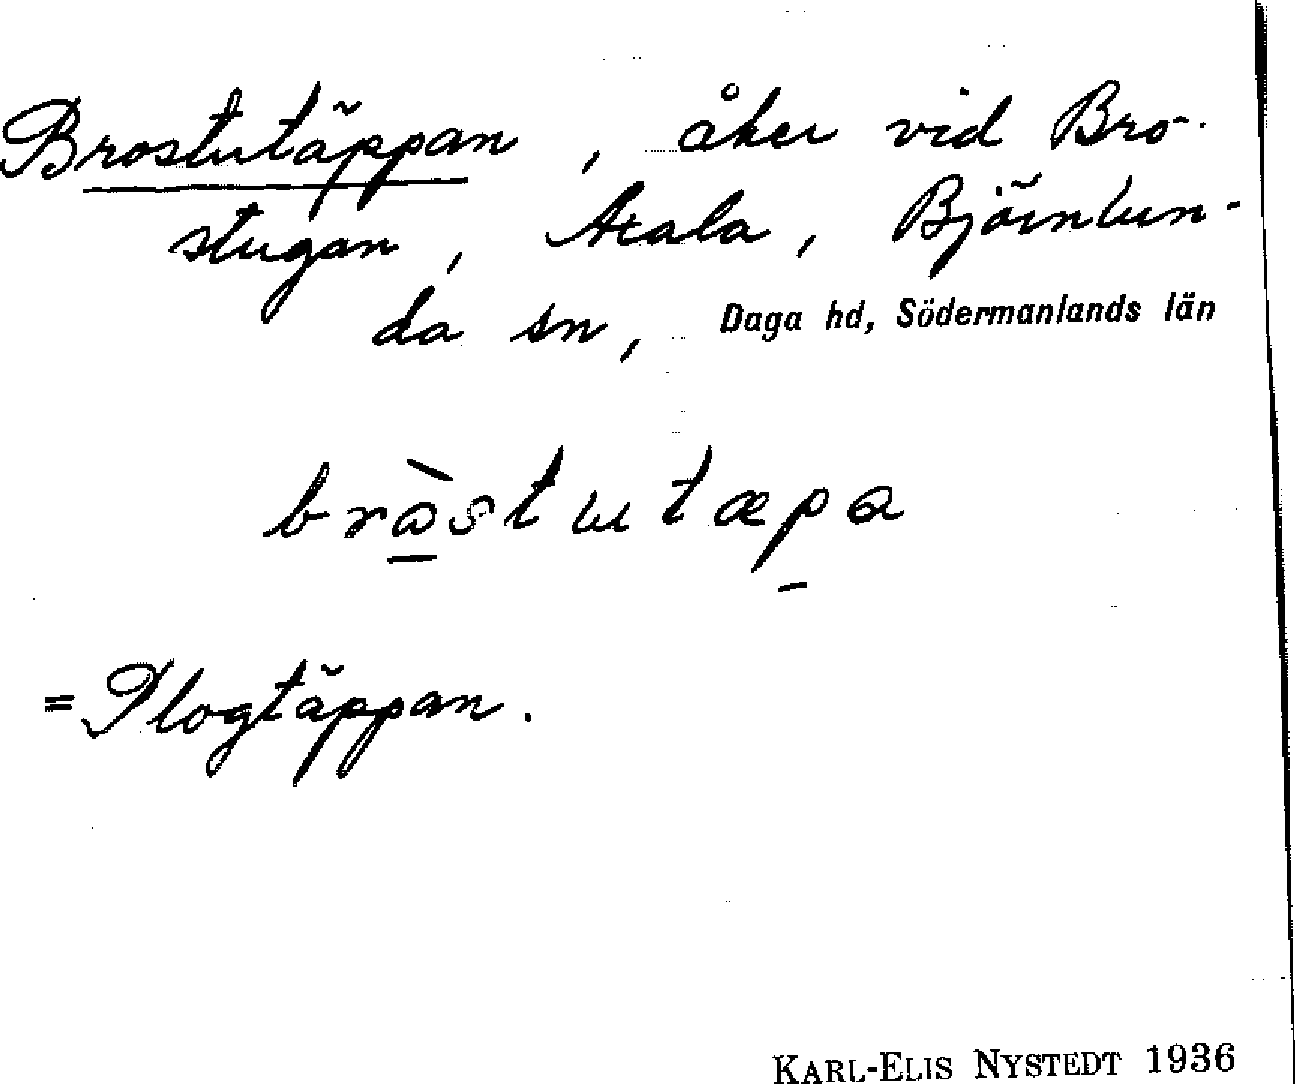 Brostutäppan, åker vid Bro-
stugan, Axala, Björnlun-
da sn, Daga hd, Södermanlands län
bròstutæpa
=Plogtäppan.
KARL-ELIS NYSTEDT 1936